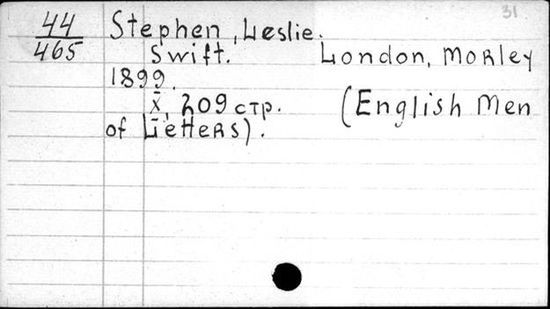 31
44 Stephen, Leslie.
465 Swift. London, Morley
1899.
X, 209 стр. (English Men
of Letters).